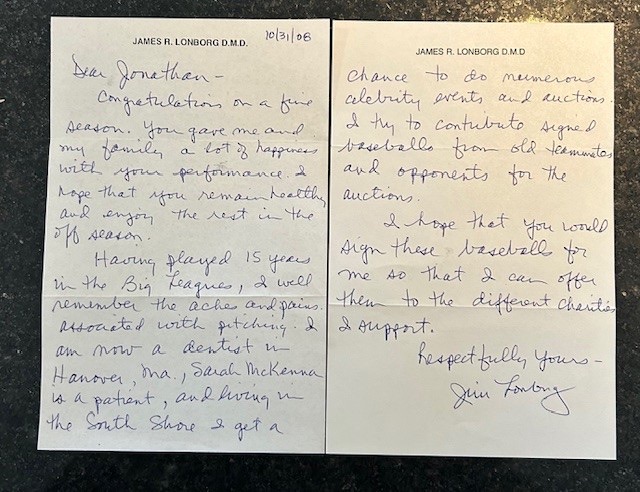 JAMES R. LONBORG D.M.D.
10/31/08
Dear Jonathan -
Congratulations on a fine
season. You gave me and
my family a lot of happiness
with your performance. I
hope that you remain healthy
and enjoy the rest in the
off season.
Having played 15 years
in the Big Leagues, I well
remember the aches and pains
associated with pitching. I
am now a dentist in
Hanover, Ma., Sarah McKenna
is a patient, and living in
the South Shore I get a
JAMES R. LONBORG D.M.D
chance to do numerous
celebrity events and auctions.
I try to contribute signed
baseballs from old teammates
and opponents for the
auctions.
I hope that you would
sign these baseballs for
me so that I can offer
them to the different charities
I support.
Respectfully Yours -
Jim Lonborg